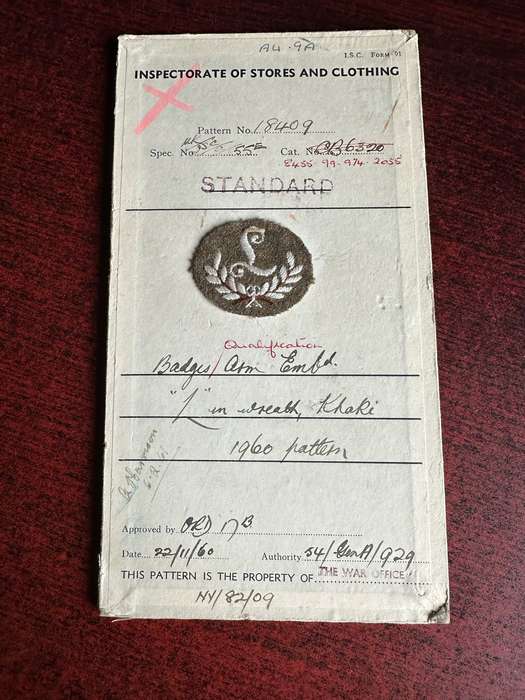 A4.9A
I.S.C. FORM 01
INSPECTORATE OF STORES AND CLOTHING
Pattern No. 18409
Spec. No. UK/SC 55E Cat. No. CB6320
8455-99-974-2055
STANDARD
L
Qualification
Badges/ Arm Emb'd.
"L" in wreath, Khaki
1960 pattern
6.9.61
Approved by ORD 17B
Date 22/11/60 Authority 54/Gen A/929
THIS PATTERN IS THE PROPERTY OF THE WAR OFFICE
NY/82/09